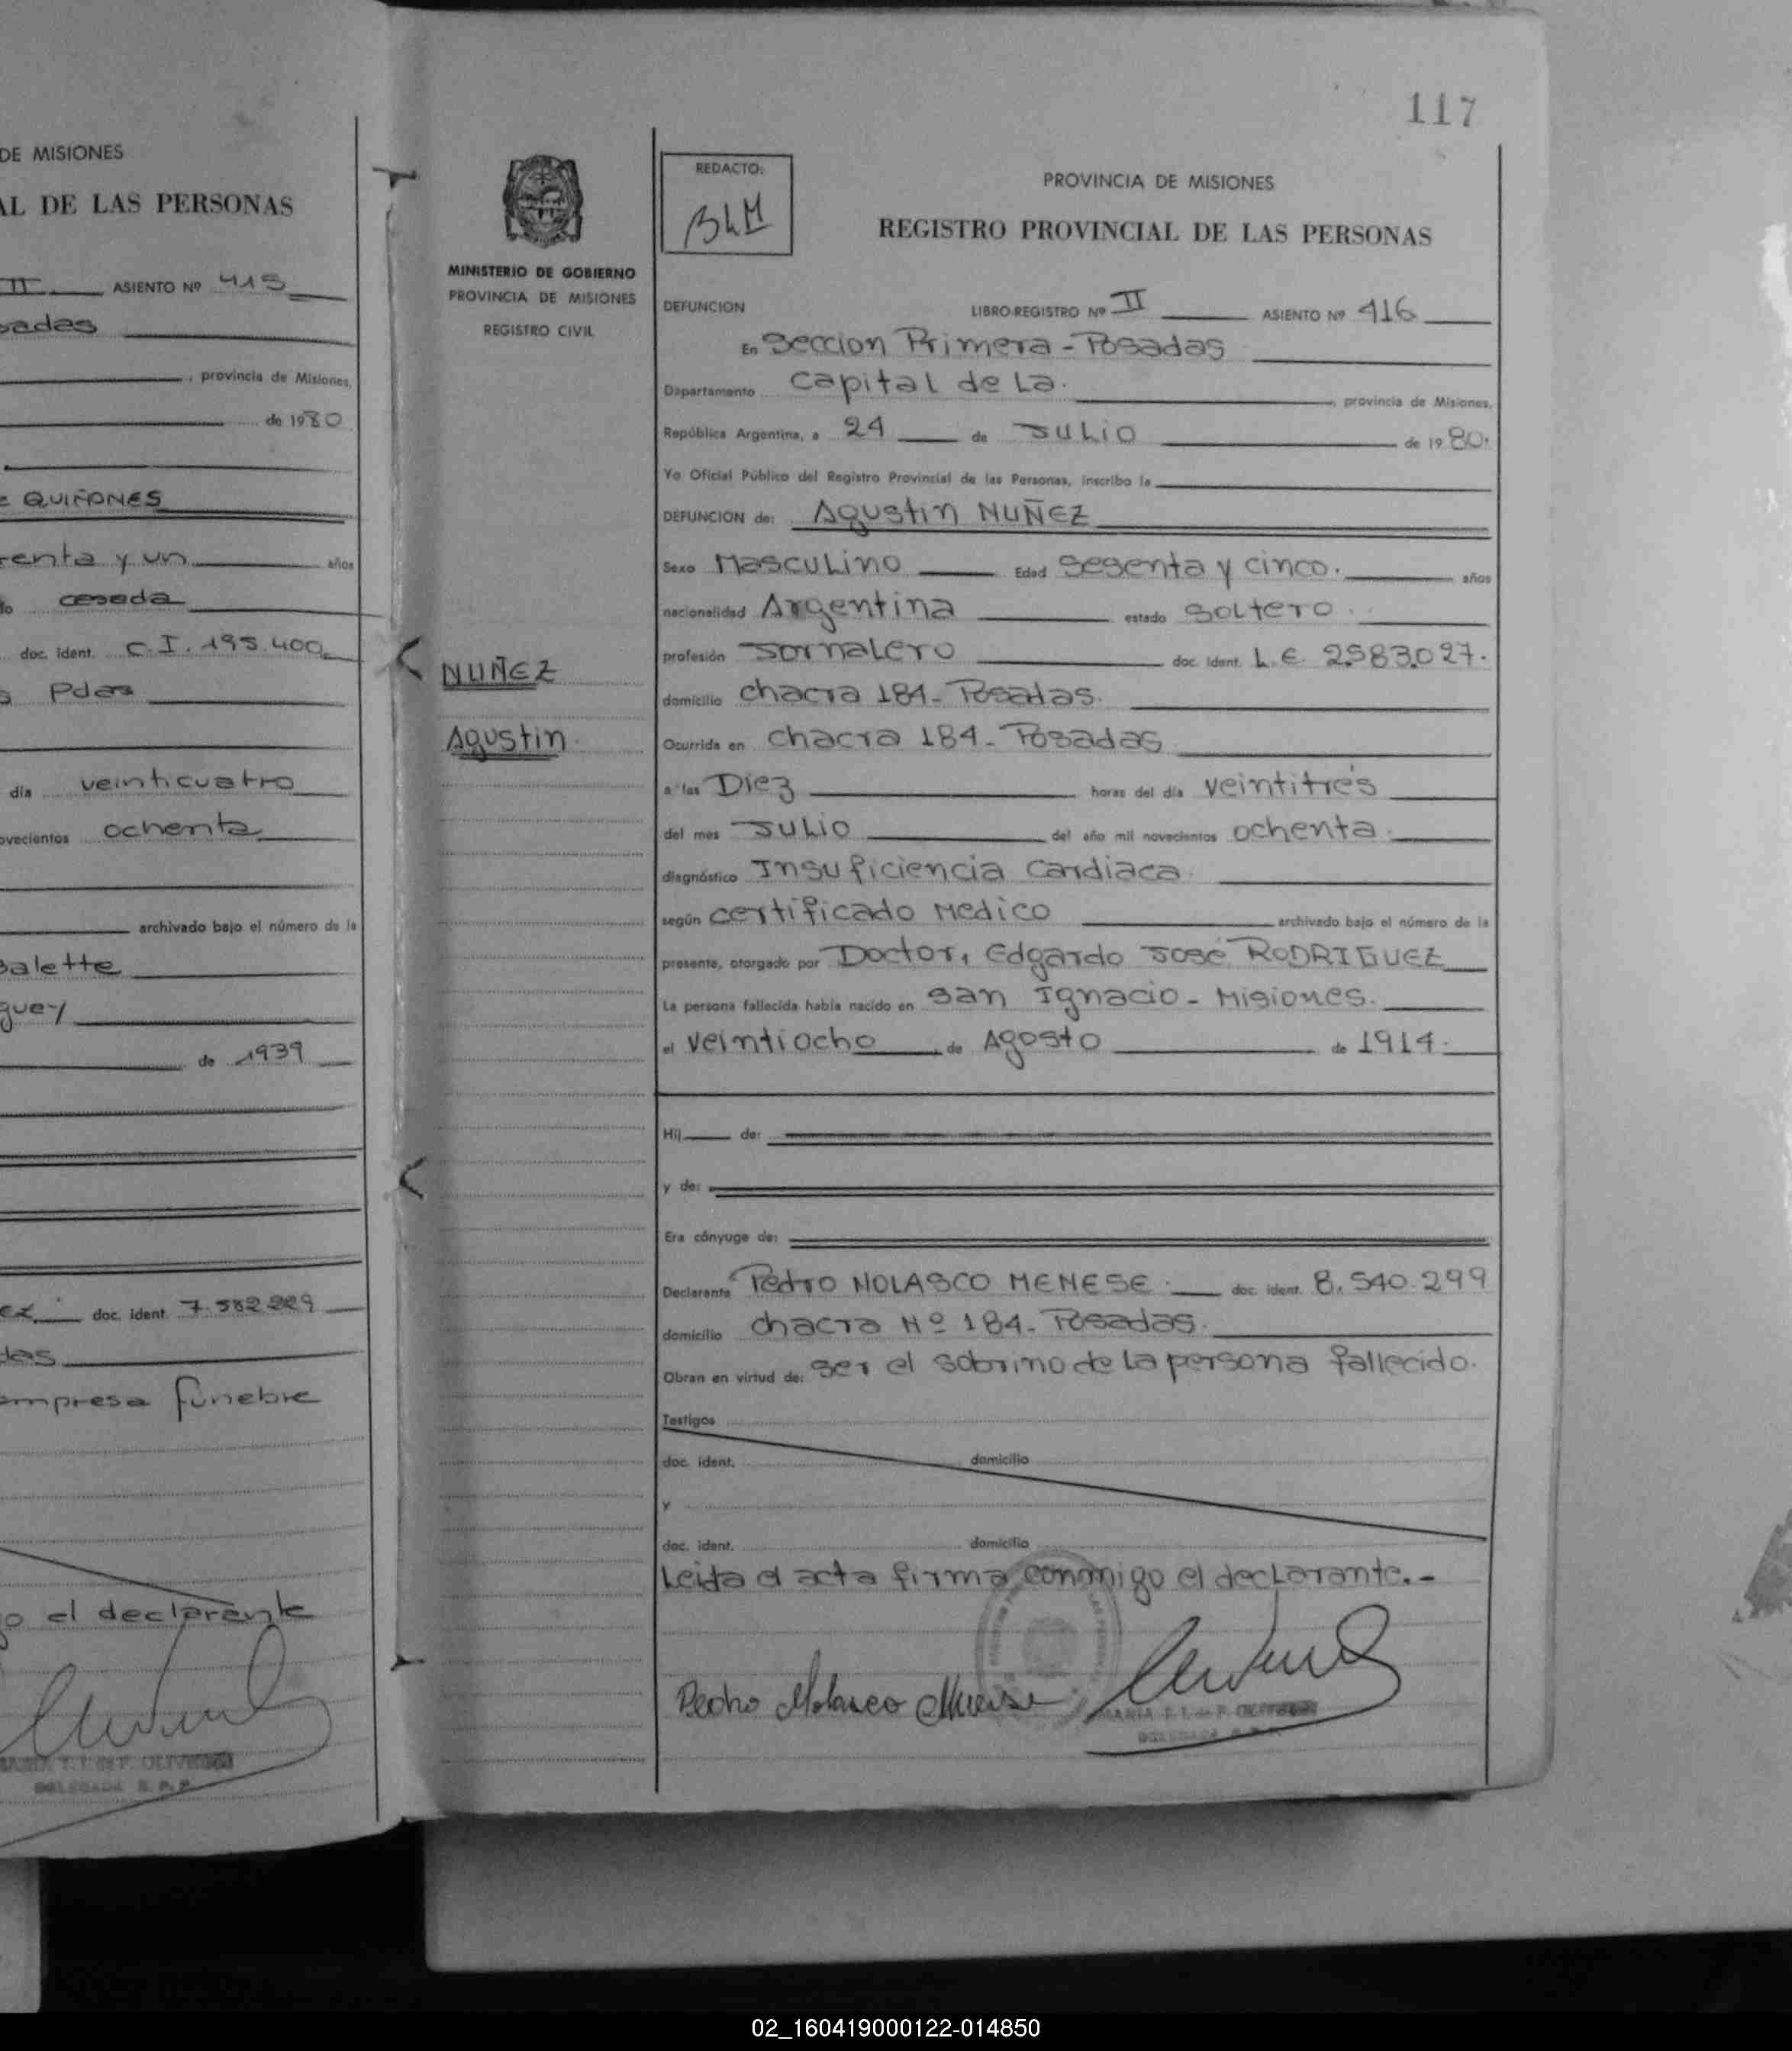 DE MISIONES
AL DE LAS PERSONAS
II ASIENTO Nº 415
sadas
, provincia de Misiones,
de 1980
QUIÑONES
renta y un años
do casada
doc. ident. C.I. 195.400
Pdas
día veinticuatro
ovecientos ochenta
archivado bajo el número de la
Balette
guey
de 1939
ez doc. ident. 7.582.229
das
empresa fúnebre
go el declarante
MARIA T. I. de F. OLIVEIRA
DELEGADA R. P. P.
117
MINISTERIO DE GOBIERNO
PROVINCIA DE MISIONES
REGISTRO CIVIL
NUÑEZ
Agustin
REDACTO:
BLM
PROVINCIA DE MISIONES
REGISTRO PROVINCIAL DE LAS PERSONAS
DEFUNCION LIBRO-REGISTRO Nº II ASIENTO Nº 416
En Seccion Primera - Posadas
Departamento Capital de La. , provincia de Misiones,
República Argentina, a 24 de Julio de 1980.
Yo Oficial Público del Registro Provincial de las Personas, inscribo la
DEFUNCION de: Agustin NUÑEZ
Sexo Masculino Edad Sesenta y cinco. años
nacionalidad Argentina estado Soltero.
profesión Jornalero doc. ident. L.E. 2.583.027.
domicilio chacra 184 - Posadas.
Ocurrida en chacra 184 - Posadas
a las Diez horas del día veintitrés
del mes Julio del año mil novecientos ochenta.
diagnóstico Insuficiencia Cardiaca.
según certificado Medico archivado bajo el número de la
presente, otorgado por Doctor, Edgardo José RODRIGUEZ
La persona fallecida había nacido en San Ignacio - Misiones.
el veintiocho de Agosto de 1914.
Hij de:
y de:
Era cónyuge de:
Declarante Pedro NOLASCO MENESE. doc. ident. 8.540.299
domicilio chacra Nº 184 - Posadas.
Obran en virtud de: Ser el sobrino de la persona fallecido.
Testigos
doc. ident. domicilio
y
doc. ident. domicilio
Leida el acta firma conmigo el declarante.-
Pedro Nolasco Menese
MARIA T. I. de F. OLIVEIRA
DELEGADA R. P. P.
02_160419000122-014850